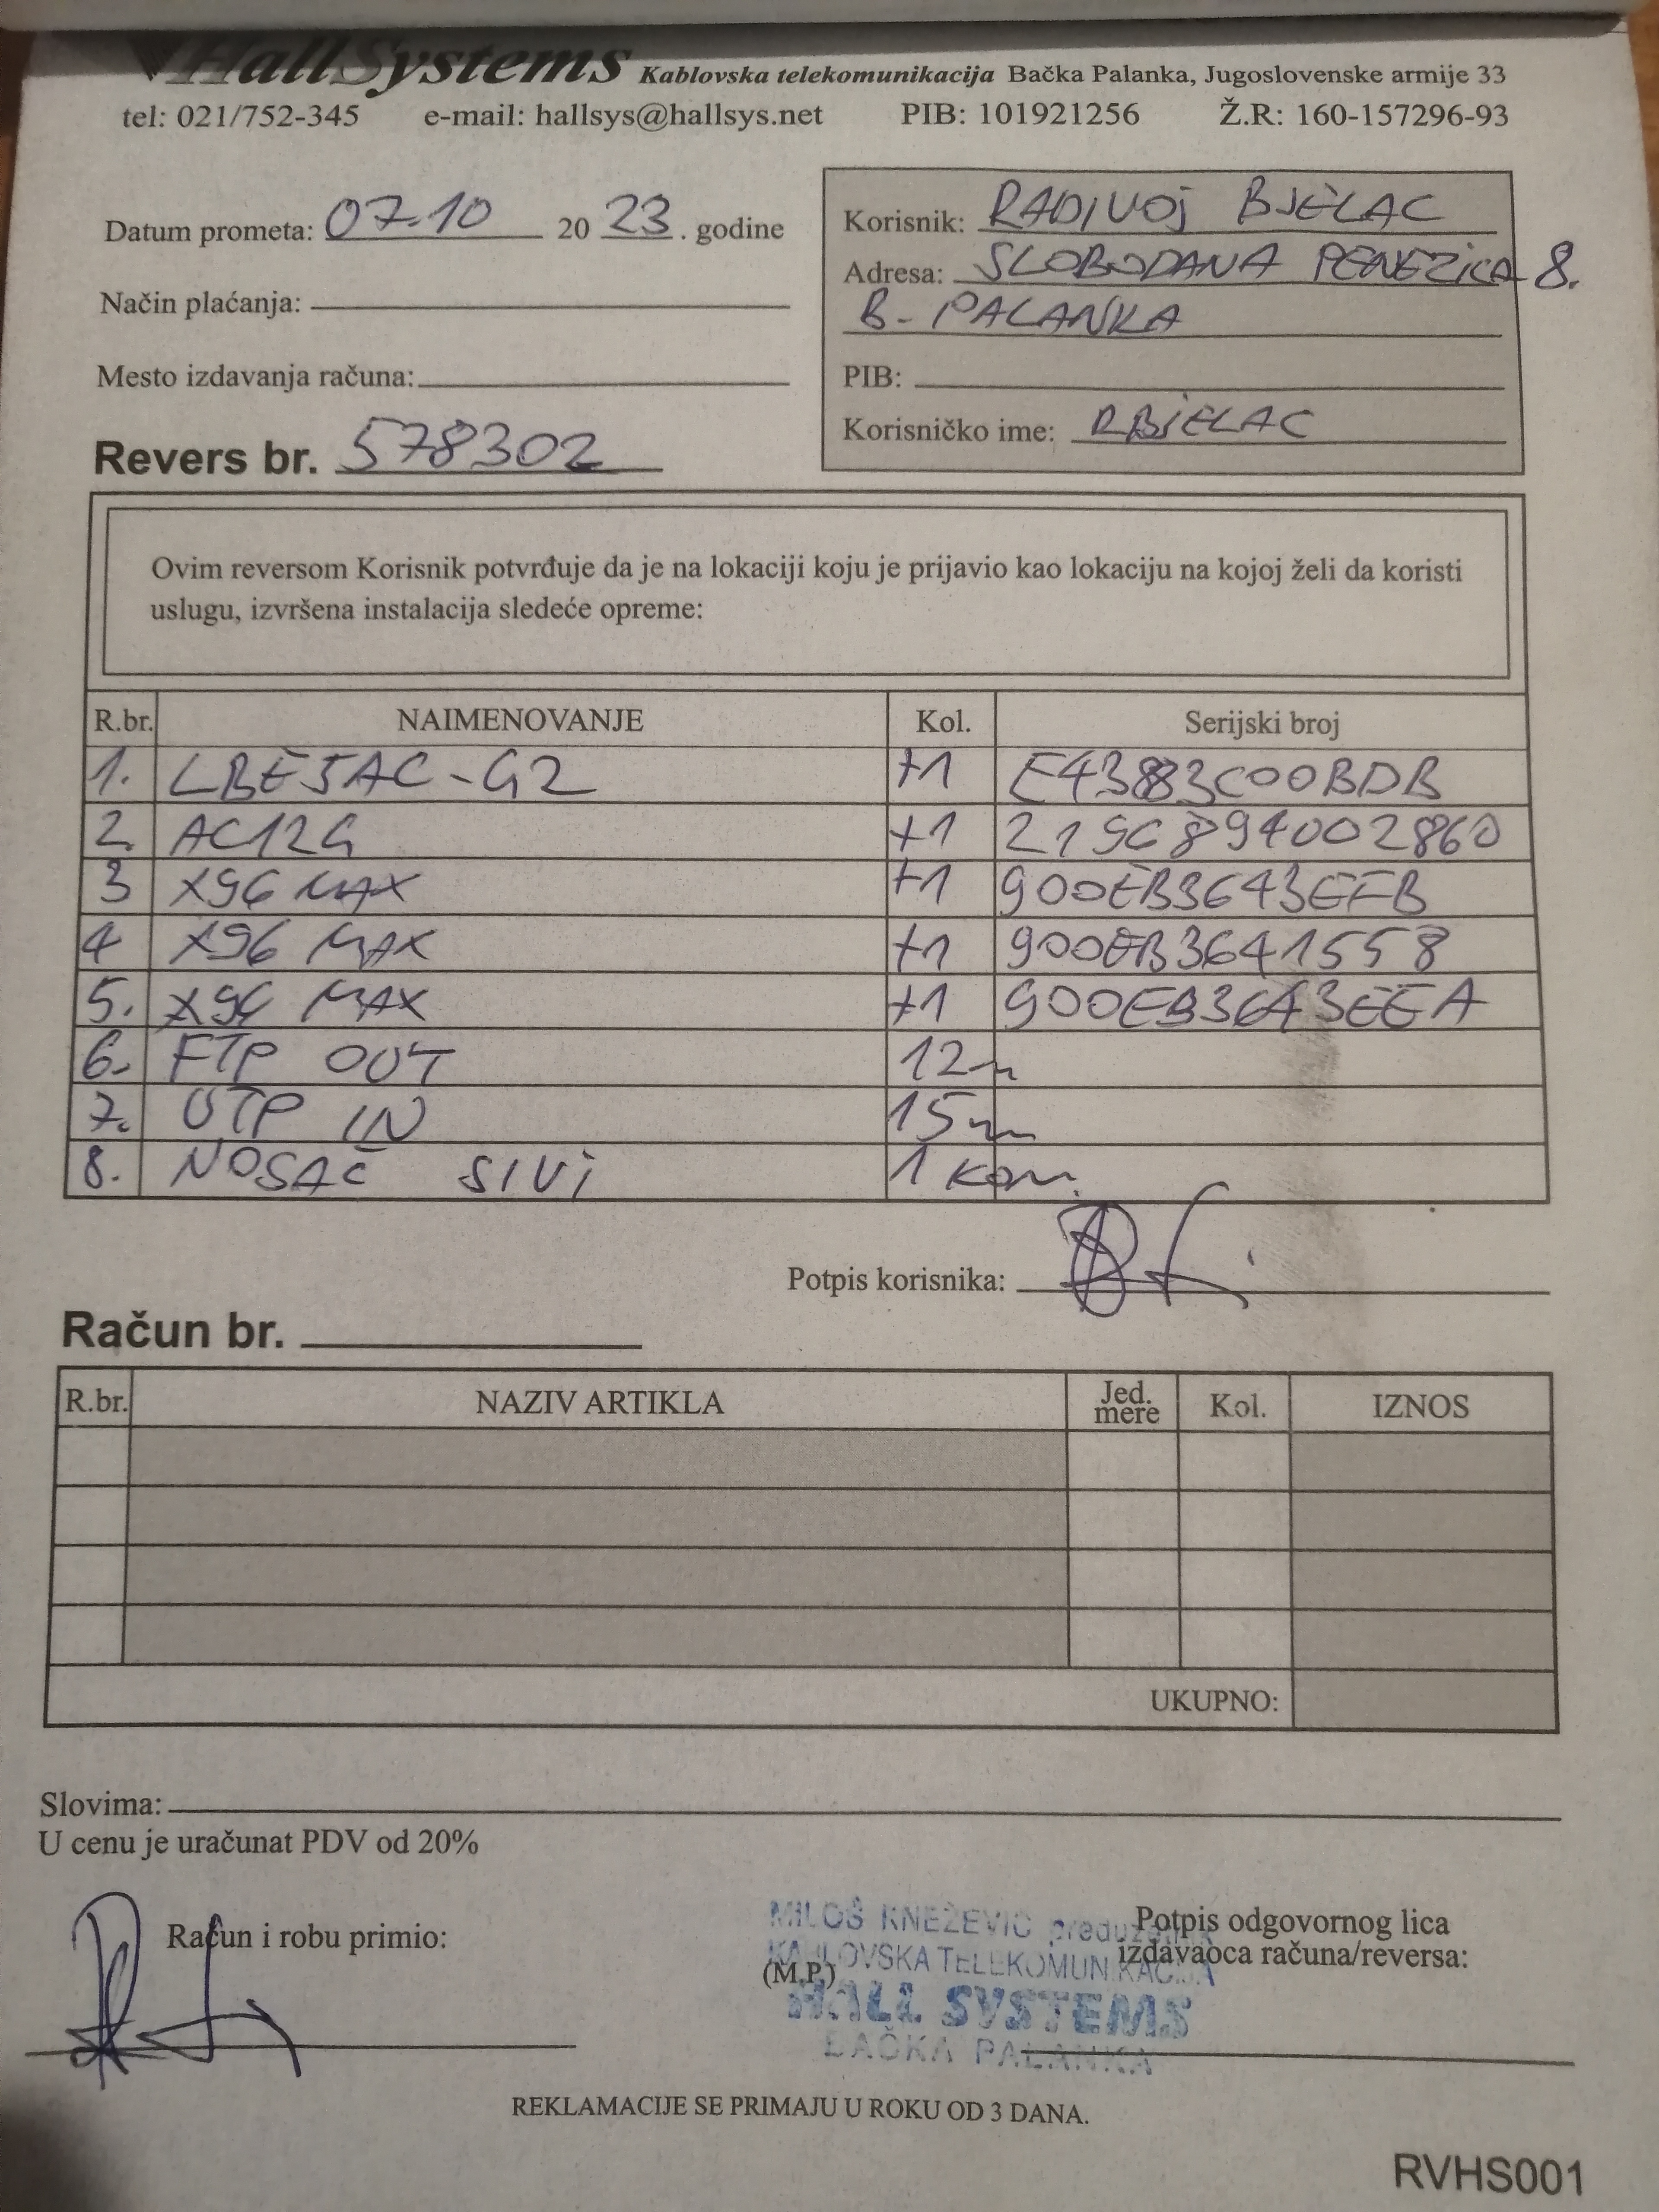 HallSystems Kablovska telekomunikacija Bačka Palanka, Jugoslovenske armije 33
tel: 021/752-345 e-mail: hallsys@hallsys.net PIB: 101921256 Ž.R: 160-157296-93
Datum prometa: 07.10 20 23 . godine
Način plaćanja:
Mesto izdavanja računa:
Revers br. 578302
Korisnik: RADIVOJ BJELAC
Adresa: SLOBODANA PENEZICA 8.
B. PALANKA
PIB:
Korisničko ime: RBJELAC
Ovim reversom Korisnik potvrđuje da je na lokaciji koju je prijavio kao lokaciju na kojoj želi da koristi
uslugu, izvršena instalacija sledeće opreme:
R.br. NAIMENOVANJE Kol. Serijski broj
1. LBE5AC-G2 +1 E43883C00BDB
2. AC12G +1 2196894002860
3 X96 MAX +1 900EB3643EFB
4 X96 MAX +1 900EB3641558
5. X96 MAX +1 900EB3643EEA
6. FTP OUT 12m
7. UTP IN 15m
8. NOSAČ SIVI 1 kom.
Potpis korisnika:
Račun br.
R.br. NAZIV ARTIKLA Jed. mere Kol. IZNOS
UKUPNO:
Slovima:
U cenu je uračunat PDV od 20%
Račun i robu primio:
(M.P.)
MILOŠ KNEŽEVIĆ preduzetnik
KABLOVSKA TELEKOMUNIKACIJA
HALL SYSTEMS
BAČKA PALANKA
Potpis odgovornog lica
izdavaoca računa/reversa:
REKLAMACIJE SE PRIMAJU U ROKU OD 3 DANA.
RVHS001